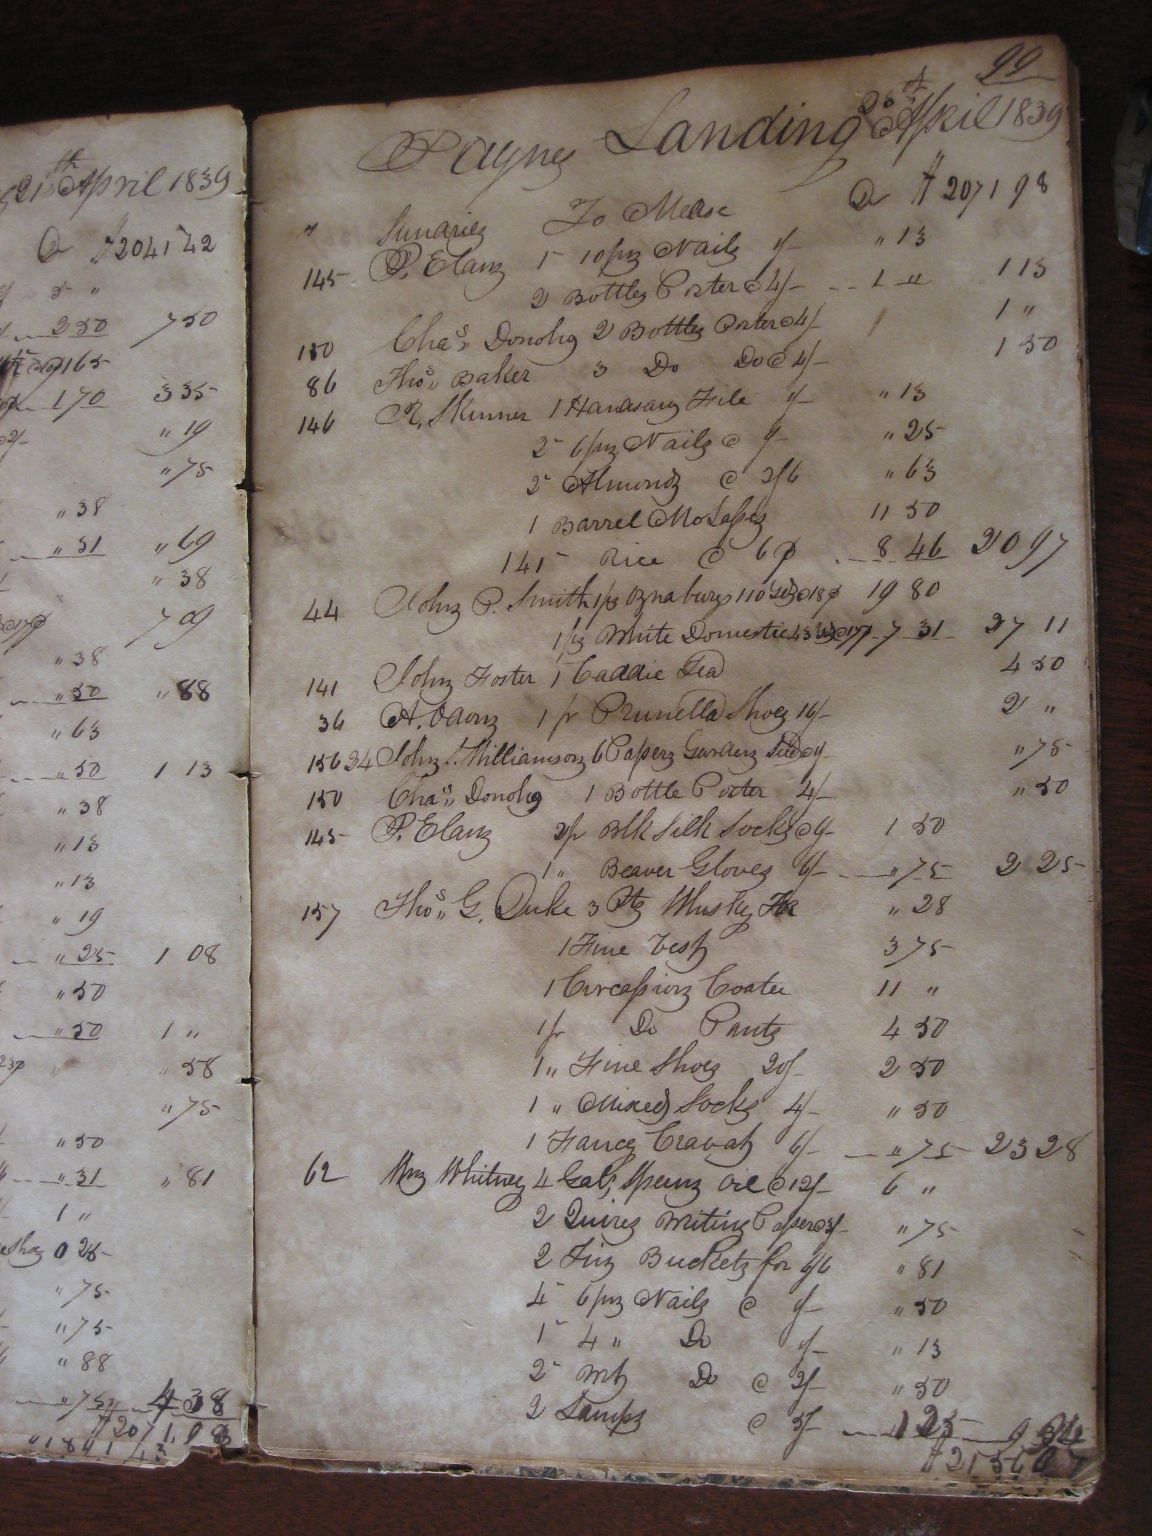 21st April 1839
D $2041 42
5 "
2 50 7 50
165
170 3 35
" 19
" 75
" 38
" 31 " 69
" 38
7 09
" 38
" 50 " 88
" 63
" 50 1 13
" 38
" 13
" 13
" 19
" 25 1 08
" 50
" 50 1 "
" 58
" 75
" 50
" 31 " 81
1 "
" 75
" 75
" 88
" 75 4 38
$2071.98
99
Paynes Landing April 1839
" Sundries To Mdse D $2071 98
145 P. Elanz 1 10pny Nails 1/- " 13
2 Bottles Porter @ 4/- 1 " 1 13
150 Chas. Donoho 2 Bottles Porter @ 4/- 1 "
86 Thos. Baker 3 Do Do @ 4/- 1 50
146 R. Skinner 1 Handsaw File 1/- " 13
2 6pny Nails @ 1/- " 25
2 Almonds @ 2/6 " 63
1 Barrel Molasses 11 50
141 Rice @ 6¢ 8 46 20 97
44 John P. Smith 1 ps Oznaburgs 110 Yds @ 18¢ 19 80
1 ps White Domestic 43 Yds @ 17¢ 7 31 27 11
141 John Foster 1 Caddie Tea 4 50
36 A. 1 pr Prunella Shoes 16/- 2 "
156 34 John Williamson 6 Papers Garden Seed @ 1/- " 75
150 Chas. Donoho 1 Bottle Porter 4/- " 50
145 P. Elanz 2 pr Blk Silk Socks @ 6/- 1 50
1 " Beaver Gloves 6/- " 75 2 25
157 Thos. G. Duke 3 Pts Whisky " 28
1 Fine Vest 3 75
1 Circassion Coatee 11 "
1 pr Do Pants 4 50
1 " Fine Shoes 20/- 2 50
1 " Mixed Socks 4/- " 50
1 Fancy Cravat 6/- " 75 23 28
62 Wm Whitney 4 Gals Sperm Oil @ 12/- 6 "
2 Quires Writing Paper @ 3/- " 75
2 Tin Buckets for 6/6 " 81
4 6pny Nails @ 1/- " 50
1 4 " Do 1/- " 13
2 Wrt Do @ 2/- " 50
2 Lamps @ 5/- 1 25 9 94